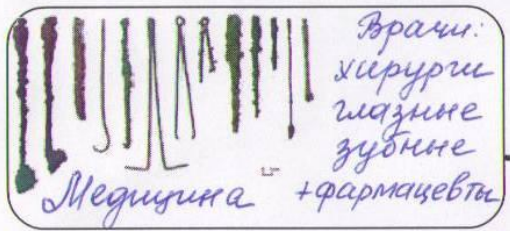 Врачи:
хирурги
глазные
зубные
+фармацевты
Медицина